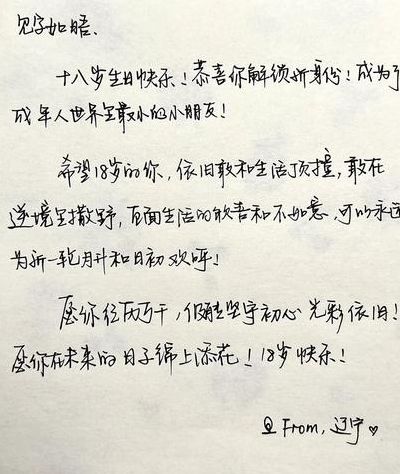 见字如晤、
十八岁生日快乐！恭喜你解锁新身份！成为了
成年人世界里最小的小朋友！
希望18岁的你，依旧敢和生活顶撞，敢在
逆境里撒野，直面生活的软吾和不如意，可以永远
为新一轮月升和日初欢呼！
愿你经历万千，仍能坚守初心 光彩依旧！
愿你在未来的日子锦上添花！18岁快乐！
From, 辽宁♡